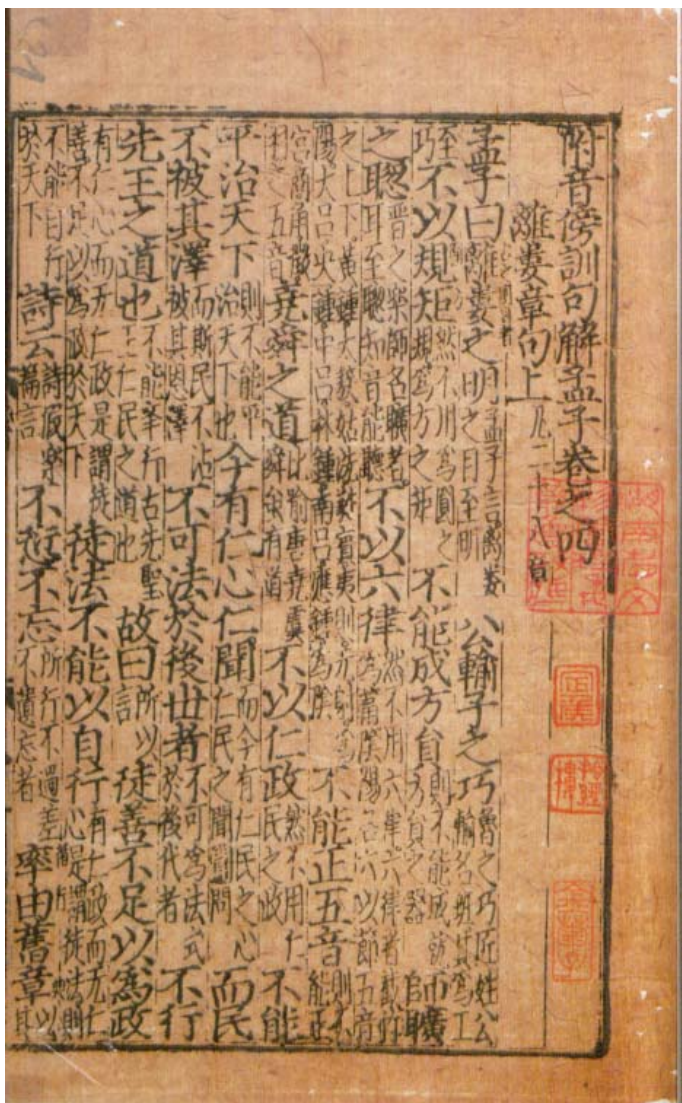 附音傍訓句解孟子卷之四
離婁章句上 凡二十八章
孟子曰離婁之明 孟子言離婁之目至明 公輸子之巧 魯之巧匠姓公輸名班其爲工
至巧 不以規矩 然不用爲圓之規爲方之矩 不能成方員 則不能成就方員之器 師曠
之聰 晉之樂師名曠者耳至聰知音能聽 不以六律 然不用六律六律者截竹爲筩陰陽各六以節五音
之上下黃鍾大蔟姑洗蕤賓夷則无射爲陽大呂夾鍾中呂林鍾南呂應鍾爲陰 不能正五音 則不能正
宮商角徵羽之五音 堯舜之道 比喻唐堯虞舜雖有道 不以仁政 然不用仁民之政 不能
平治天下 則不能平治天下也 今有仁心仁聞 而今有仁民之心仁民之聞聲聞 而民
不被其澤 而斯民不沾被其恩澤 不可法於後世者 不可爲法式於後代者 不行
先王之道也 不能舉行古先聖王仁民之道也 故曰 所以言 徒善不足以爲政
有仁心而无仁政是謂徒善不足以爲政於天下 徒法不能以自行 有仁政而无仁心是謂徒法則
不能自行於天下 詩云 詩假樂篇言 不愆不忘 所行不過差不遺忘者 率由舊章 以其